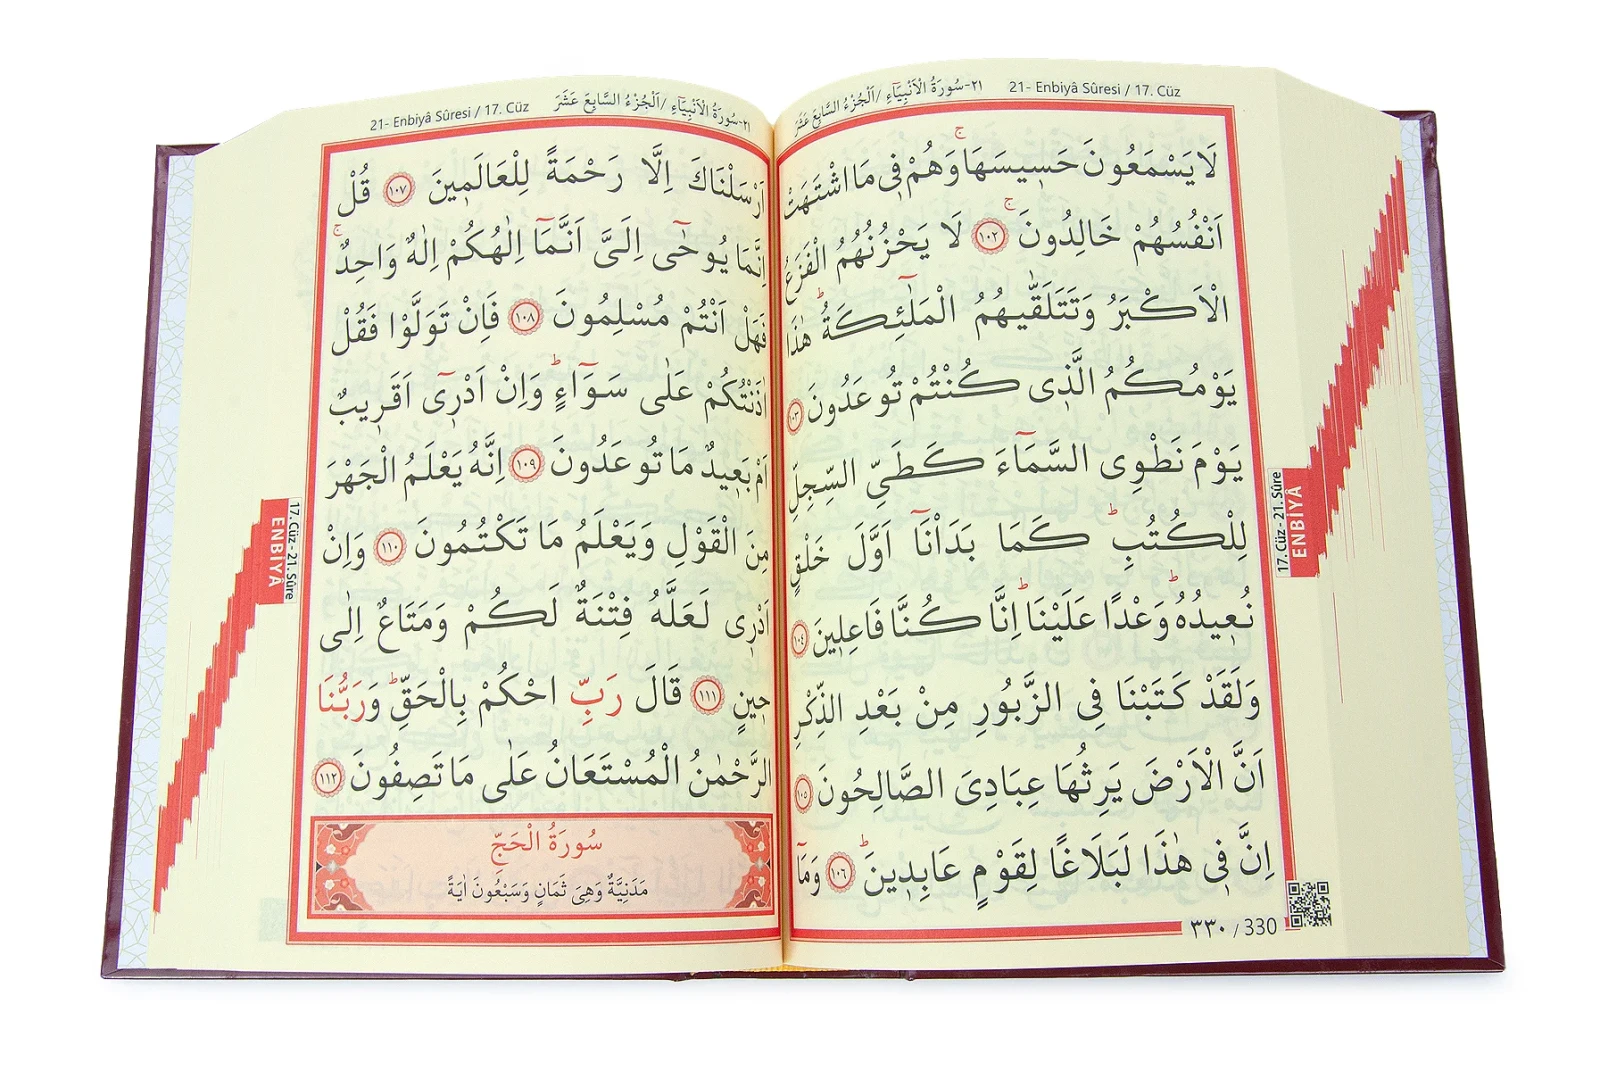 ٢١-سُورَةُ الْاَنْبِيَٓاءِ /اَلْجُزْءُ السَّابِعَ عَشَرَ 21- Enbiyâ Sûresi / 17. Cüz
لَا يَسْمَعُونَ حَس۪يسَهَاۚ وَهُمْ ف۪ي مَا اشْتَهَتْ
اَنْفُسُهُمْ خَالِدُونَۚ ١٠٢ لَا يَحْزُنُهُمُ الْفَزَعُ
الْاَكْبَرُ وَتَتَلَقّٰيهُمُ الْمَلٰٓئِكَةُۜ هٰذَا
يَوْمُكُمُ الَّذ۪ى كُنْتُمْ تُوعَدُونَ ١٠٣
يَوْمَ نَطْوِى السَّمَٓاءَ كَطَيِّ السِّجِلِّ
لِلْكُتُبِۜ كَمَا بَدَاْنَٓا اَوَّلَ خَلْقٍ
نُع۪يدُهُۜ وَعْدًا عَلَيْنَاۜ اِنَّا كُنَّا فَاعِل۪ينَ ١٠٤
وَلَقَدْ كَتَبْنَا فِى الزَّبُورِ مِنْ بَعْدِ الذِّكْرِ
اَنَّ الْاَرْضَ يَرِثُهَا عِبَادِىَ الصَّالِحُونَ ١٠٥
اِنَّ ف۪ى هٰذَا لَبَلَاغًا لِقَوْمٍ عَابِد۪ينَۜ ١٠٦ وَمَٓا
٣٣٠ / 330
17. Cüz - 21. Sûre
ENBİYÂ
21- Enbiyâ Sûresi / 17. Cüz ٢١-سُورَةُ الْاَنْبِيَٓاءِ /اَلْجُزْءُ السَّابِعَ عَشَرَ
اَرْسَلْنَاكَ اِلَّا رَحْمَةً لِلْعَالَم۪ينَ ١٠٧ قُلْ
اِنَّمَا يُوحٰٓى اِلَىَّ اَنَّمَٓا اِلٰهُكُمْ اِلٰهٌ وَاحِدٌۚ
فَهَلْ اَنْتُمْ مُسْلِمُونَ ١٠٨ فَاِنْ تَوَلَّوْا فَقُلْ
اٰذَنْتُكُمْ عَلٰى سَوَٓاءٍۜ وَاِنْ اَدْر۪ٓى اَقَر۪يبٌ
اَمْ بَع۪يدٌ مَا تُوعَدُونَ ١٠٩ اِنَّهُ يَعْلَمُ الْجَهْرَ
مِنَ الْقَوْلِ وَيَعْلَمُ مَا تَكْتُمُونَ ١١٠ وَاِنْ
اَدْر۪ى لَعَلَّهُ فِتْنَةٌ لَكُمْ وَمَتَاعٌ اِلٰى
ح۪ينٍ ١١١ قَالَ رَبِّ احْكُمْ بِالْحَقِّۜ وَرَبُّنَا
الرَّحْمٰنُ الْمُسْتَعَانُ عَلٰى مَا تَصِفُونَ ١١٢
سُورَةُ الْحَجِّ
مَدَنِيَّةٌ وَهِىَ ثَمَانٍ وَسَبْعُونَ اٰيَةً
17. Cüz - 21. Sûre
ENBİYÂ